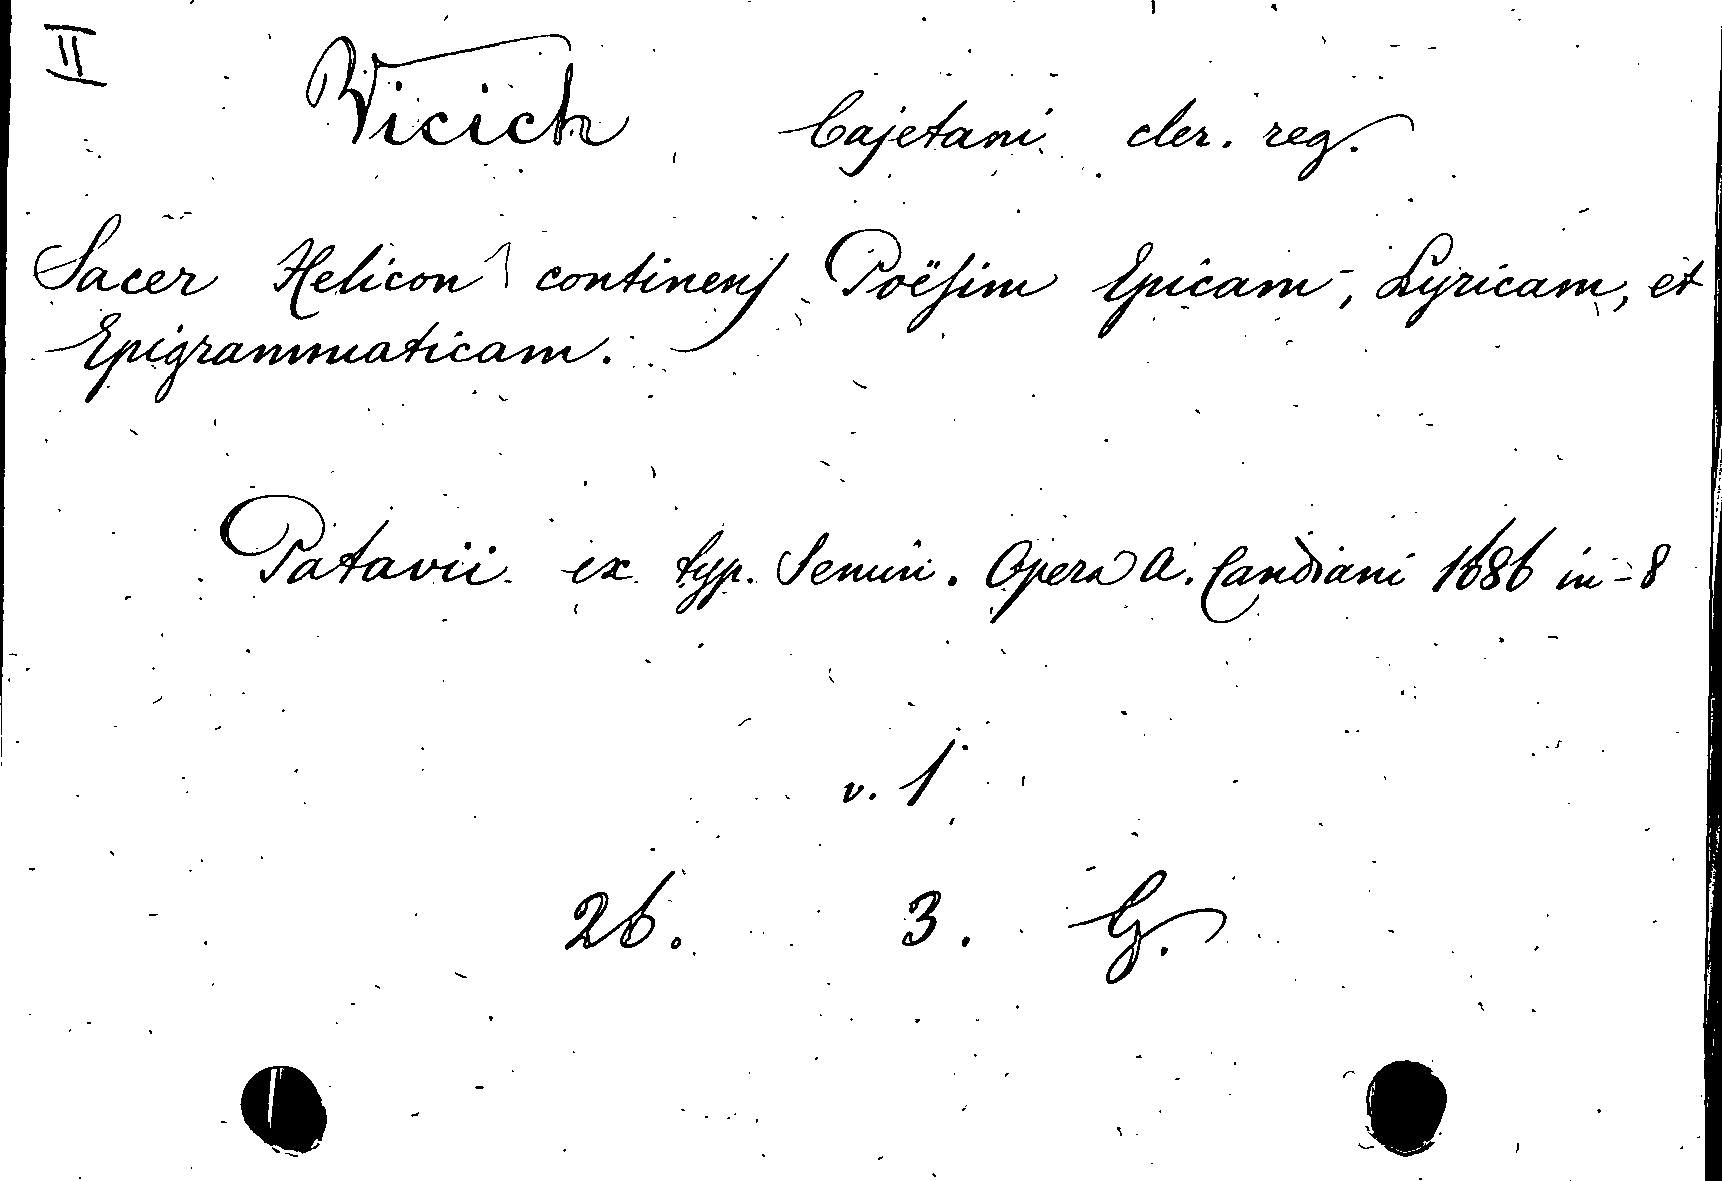 II
Vicich Cajetani cler. reg.
Sacer Helicon continens Poësim Epicam, Lyricam, et
Epigrammaticam.
Patavii ex typ. Semin. Opera A. Candiani 1686 in-8
v. 1
26. 3. G.